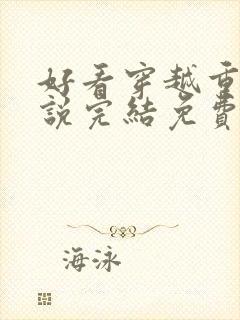 好看穿越重
說完結免費
海泳